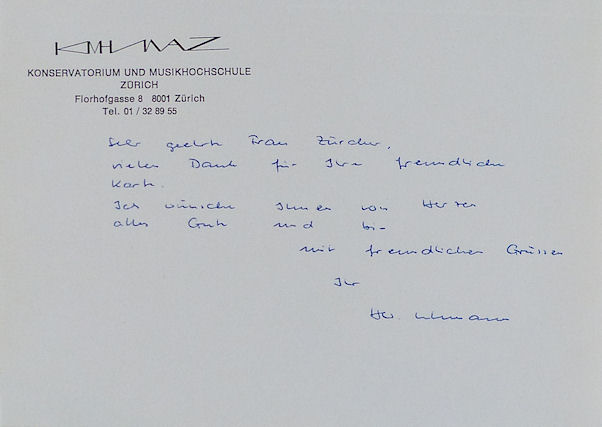 KONSERVATORIUM UND MUSIKHOCHSCHULE
ZÜRICH
Florhofgasse 8 8001 Zürich
Tel. 01 / 32 89 55
Sehr geehrte Frau Zürcher,
vielen Dank für Ihre freundliche
Karte.
Ich wünsche Ihnen von Herzen
alles Gute und bin
mit freundlichen Grüssen
Ihr